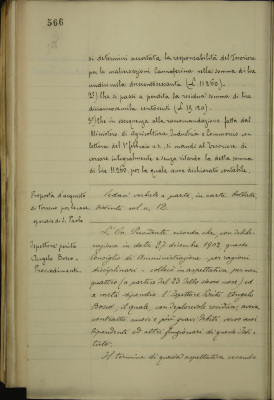 566
si determini accertata la responsabilità del Tesoriere
per le malversazioni Cannaferina nella somma di lire
undicimila duecentosessanta (L. 11260).
2°) Che si passi a perdita la residua somma di lire
diciannovemila centoventi (L. 19.120).
3°) Che in ossequio alla raccomandazione fatta dal
Ministero di Agricoltura Industria e Commercio con
lettera del 1° febbraio u.s., si mandi al Tesoriere di
versare integralmente e senza ritardo la detta somma
di lire 11260, per la quale venne dichiarato contabile.
Proposta d'acquisto
di terreno per le case
operaie di S. Paolo
Vedasi verbale a parte, in carta bollata,
distinto col n. 12.
Ispettore perito
Angelo Bosco
Provvedimenti.
L'On. Presidente ricorda che, con deli-
berazione in data 27 dicembre 1902 questo
Consiglio di Amministrazione, per ragioni
disciplinari, collocò in aspettativa, per mesi
quattro (a partire dal 23 dello stesso mese) ed
a metà stipendio l'Ispettore Perito Angelo
Bosco, il quale, con deplorevole recidiva, aveva
contratto nuovi e più gravi debiti verso suoi
dipendenti ed altri funzionari di questo Isti-
tuto.
Il termine di questa aspettativa essendo